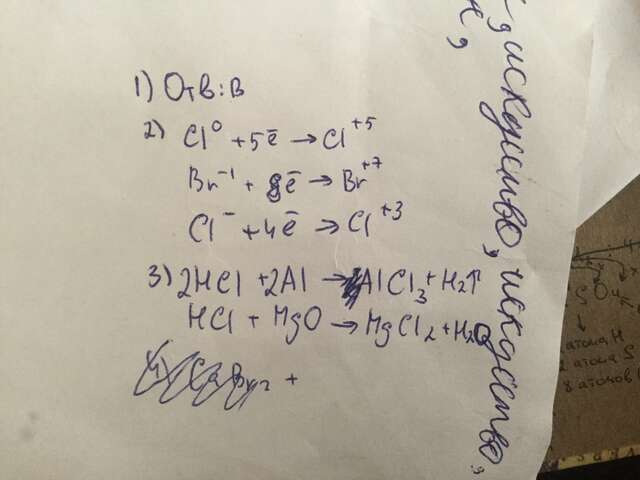 1) Отв: В
2) Cl⁰ + 5ē → Cl⁺⁵
Br⁻¹ + 8ē → Br⁺⁷
Cl⁻ + 4ē → Cl⁺³
3) 2HCl + 2Al → AlCl₃ + H₂↑
HCl + MgO → MgCl₂ + H₂O
+
искусство, искусство,
SO₄
атома H
2 атома S
8 атомов